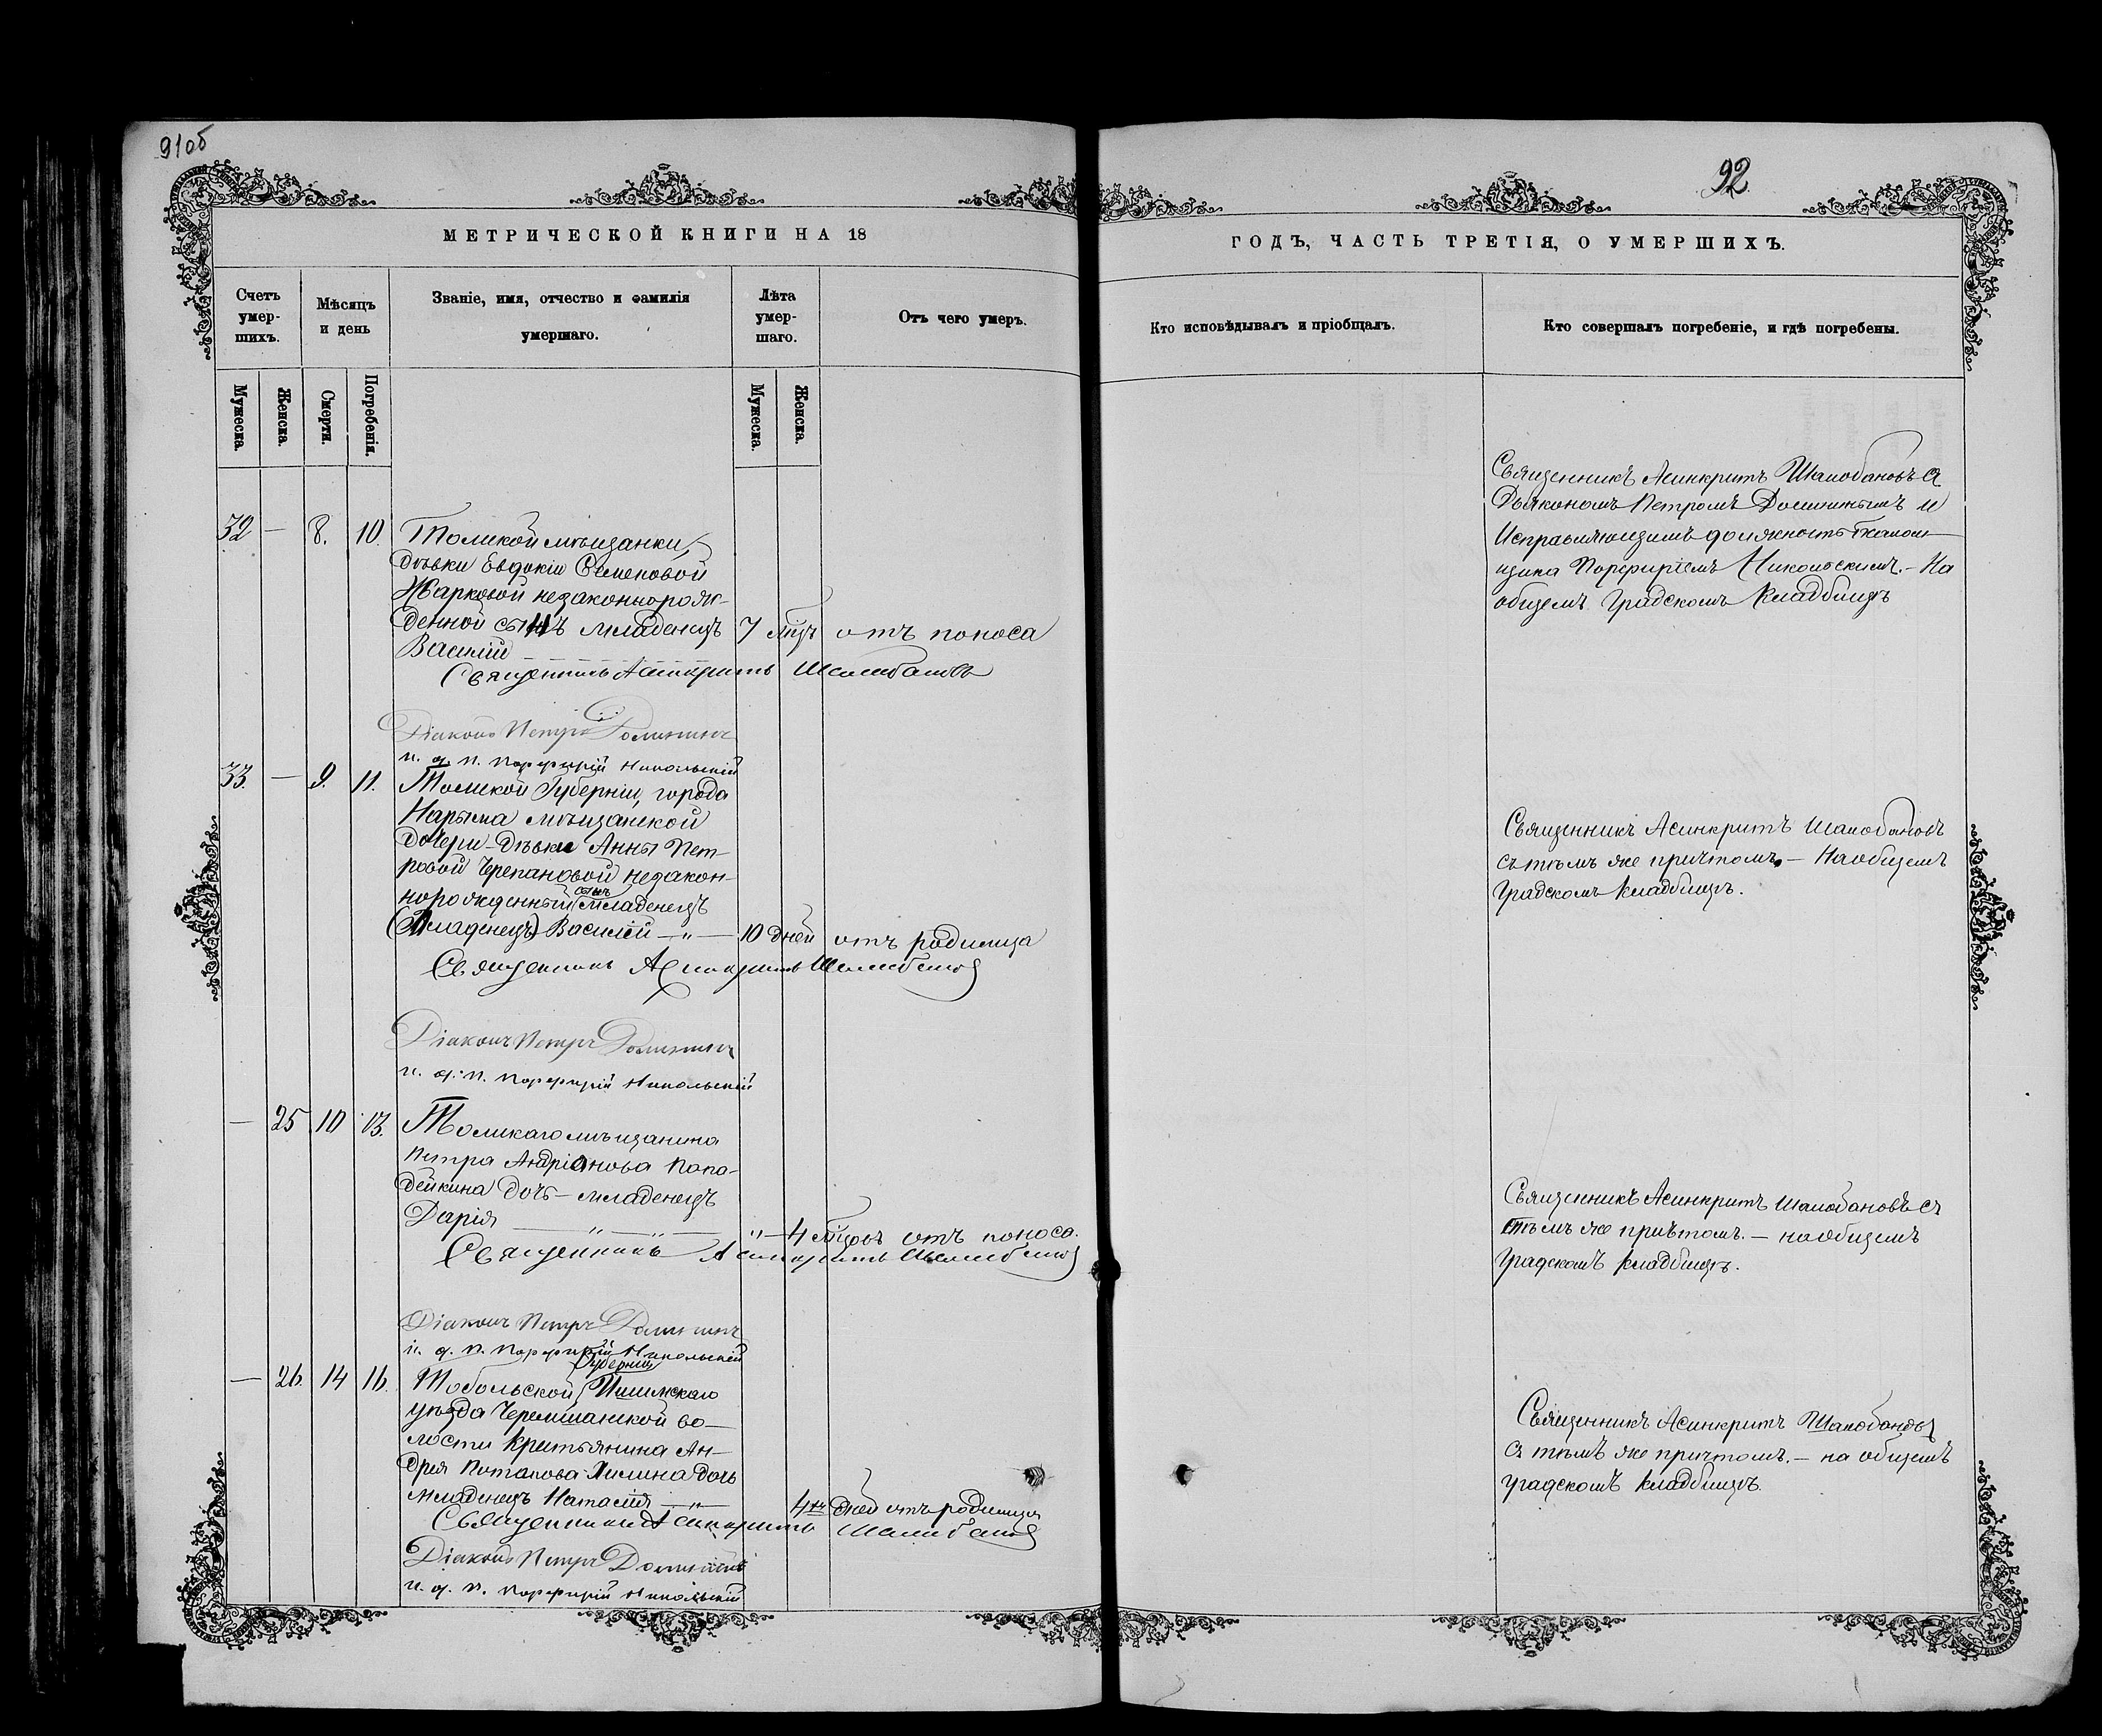 91об
92
МЕТРИЧЕСКОЙ КНИГИ НА 18
ГОДЪ, ЧАСТЬ ТРЕТІЯ, О УМЕРШИХЪ.
Счетъ умер-шихъ.
Мѣсяцъ и день
Званіе, имя, отчество и фамилія умершаго.
Лѣта умер-шаго.
Отъ чего умеръ.
Кто исповѣдывалъ и пріобщалъ.
Кто совершалъ погребеніе, и гдѣ погребены.
Мужеска.
Женска.
Смерти.
Погребенія.
Мужеска.
Женска.
32 — 8. 10. Томской мѣщанки,
дѣвки Евдокіи Семеновой
Жарковой незаконнорож-
денной сынъ младенецъ 7 мцъ отъ поноса
Василій
Священникъ Асинкритъ Шалобановъ
Діаконъ Петръ Доминынъ
и. д. п. Порфирій Никольскій
Священникъ Асинкритъ Шалобановъ съ
Дьякономъ Петромъ Доминынымъ и
Исправляющимъ должность Псалом-
щика Порфиріемъ Никольскимъ. – На
общемъ Градскомъ Кладбищѣ
33. — 9. 11. Томской Губерніи, города
Нарыма мѣщанской
дочери – дѣвки Анны Пет-
ровой Черепановой незакон-
сынъ
норожденный младенецъ
(Младенецъ) Василій — „ — 10 дней отъ родимца
Священникъ Асинкритъ Шалобановъ
Діаконъ Петръ Доминынъ
и. д. п. Порфирій Никольскій
Священникъ Асинкритъ Шалобановъ
съ тѣмъ же причтомъ, — На общемъ
Градскомъ кладбищѣ.
— 25 10 13. Томскаго мѣщанина
Петра Андріанова Попа-
дейкина дочь – младенецъ
Дарія — „ — „ — „ — 4 мцовъ отъ поноса.
Священникъ Асинкритъ Шалобановъ
Діаконъ Петръ Доминынъ
и. д. п. Порфирій Никольскій
Священникъ Асинкритъ Шалобановъ съ
тѣмъ же причтомъ. — на общемъ
градскомъ кладбищѣ.
Губерніи
— 26. 14 16. Тобольской Ишимскаго
уѣзда Черемшанской во-
лости крестьянина Ан-
дрея Потапова Хилина дочь
младенецъ Наталія — „ — 4хъ дней отъ родимца
Священникъ Асинкритъ Шалобановъ
Діаконъ Петръ Доминынъ
и. д. п. Порфирій Никольскій
Священникъ Асинкритъ Шалобановъ
съ тѣмъ же причтомъ. — на общемъ
градскомъ кладбищѣ.